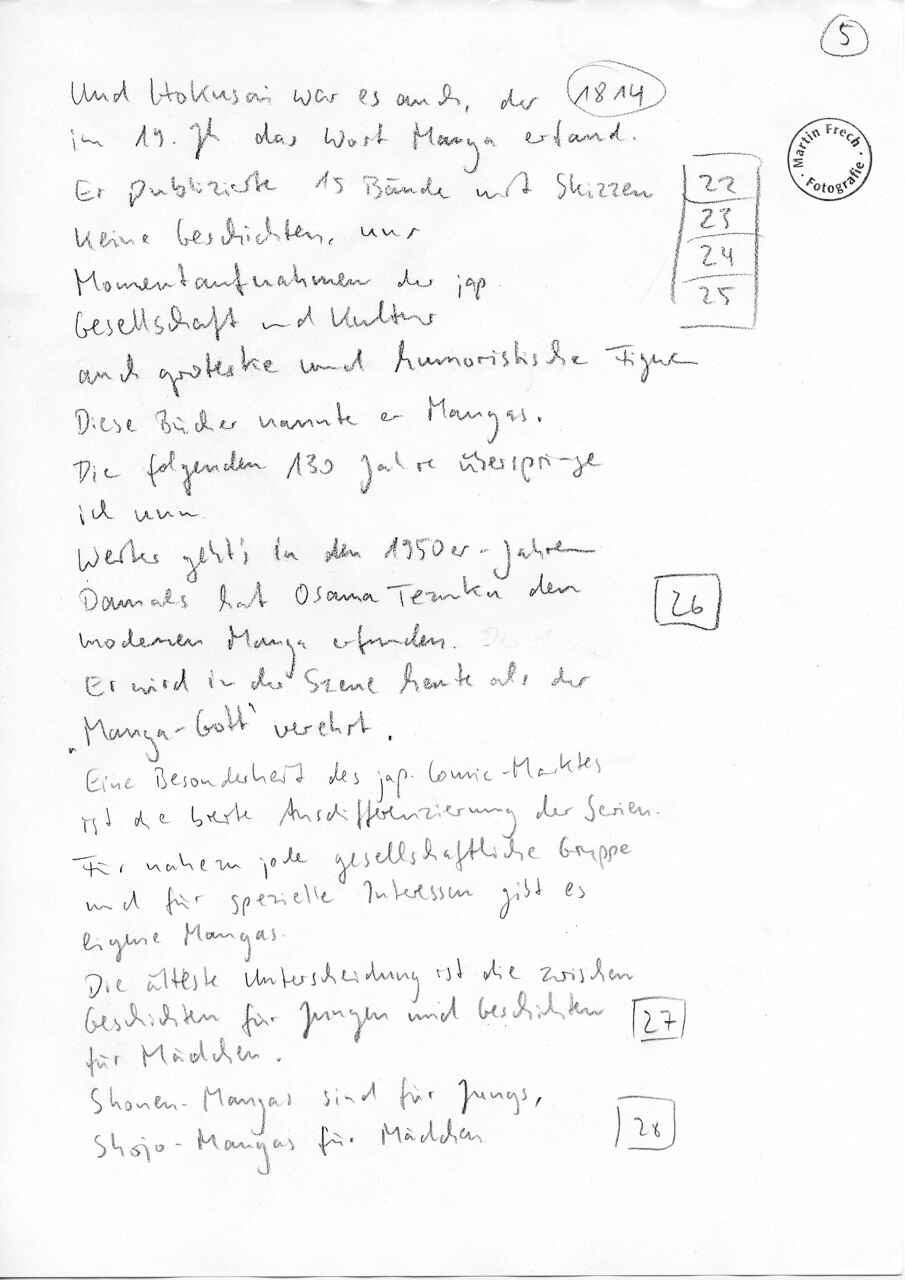 5
Und Hokusai war es auch, der 1814
im 19. Jh das Wort Manga erfand.
Martin Frech · Fotografie ·
Er publizierte 15 Bände mit Skizzen 22
Keine Geschichten, nur 23
Momentaufnahmen der jap. 24
25
Gesellschaft und Kultur
auch groteske und humoristische Figuren
Diese Bücher nannte er Mangas.
Die folgenden 130 Jahre überspringe
ich nun
Weiter geht's in den 1950er-Jahren
Damals hat Osama Tezuka den 26
modernen Manga erfunden.
Er wird in der Szene heute als der
„Manga-Gott" verehrt.
Eine Besonderheit des jap. Comic-Marktes
ist die breite Ausdifferenzierung der Serien.
Für nahezu jede gesellschaftliche Gruppe
und für spezielle Interessen gibt es
eigene Mangas.
Die älteste Unterscheidung ist die zwischen
Geschichten für Jungen und Geschichten 27
für Mädchen.
Shonen-Mangas sind für Jungs,
Shojo-Mangas für Mädchen 28